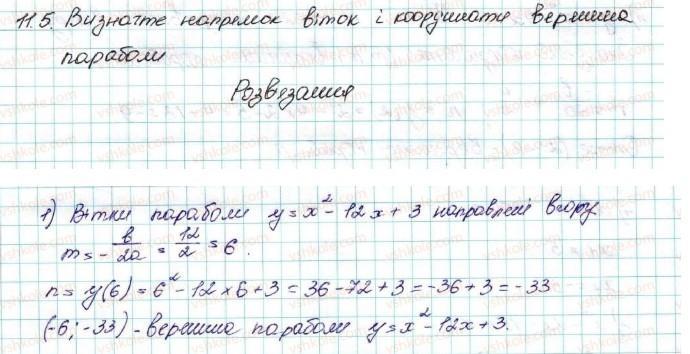 11.5. Визначте напрямок віток і координати вершина
параболи
Розвязання
1) Вітки параболи y = x² - 12x + 3 направлені вгору
m = - b/2a = 12/2 = 6.
n = y(6) = 6² - 12 × 6 + 3 = 36 - 72 + 3 = -36 + 3 = -33
(-6; -33) - вершина параболи y = x² - 12x + 3.